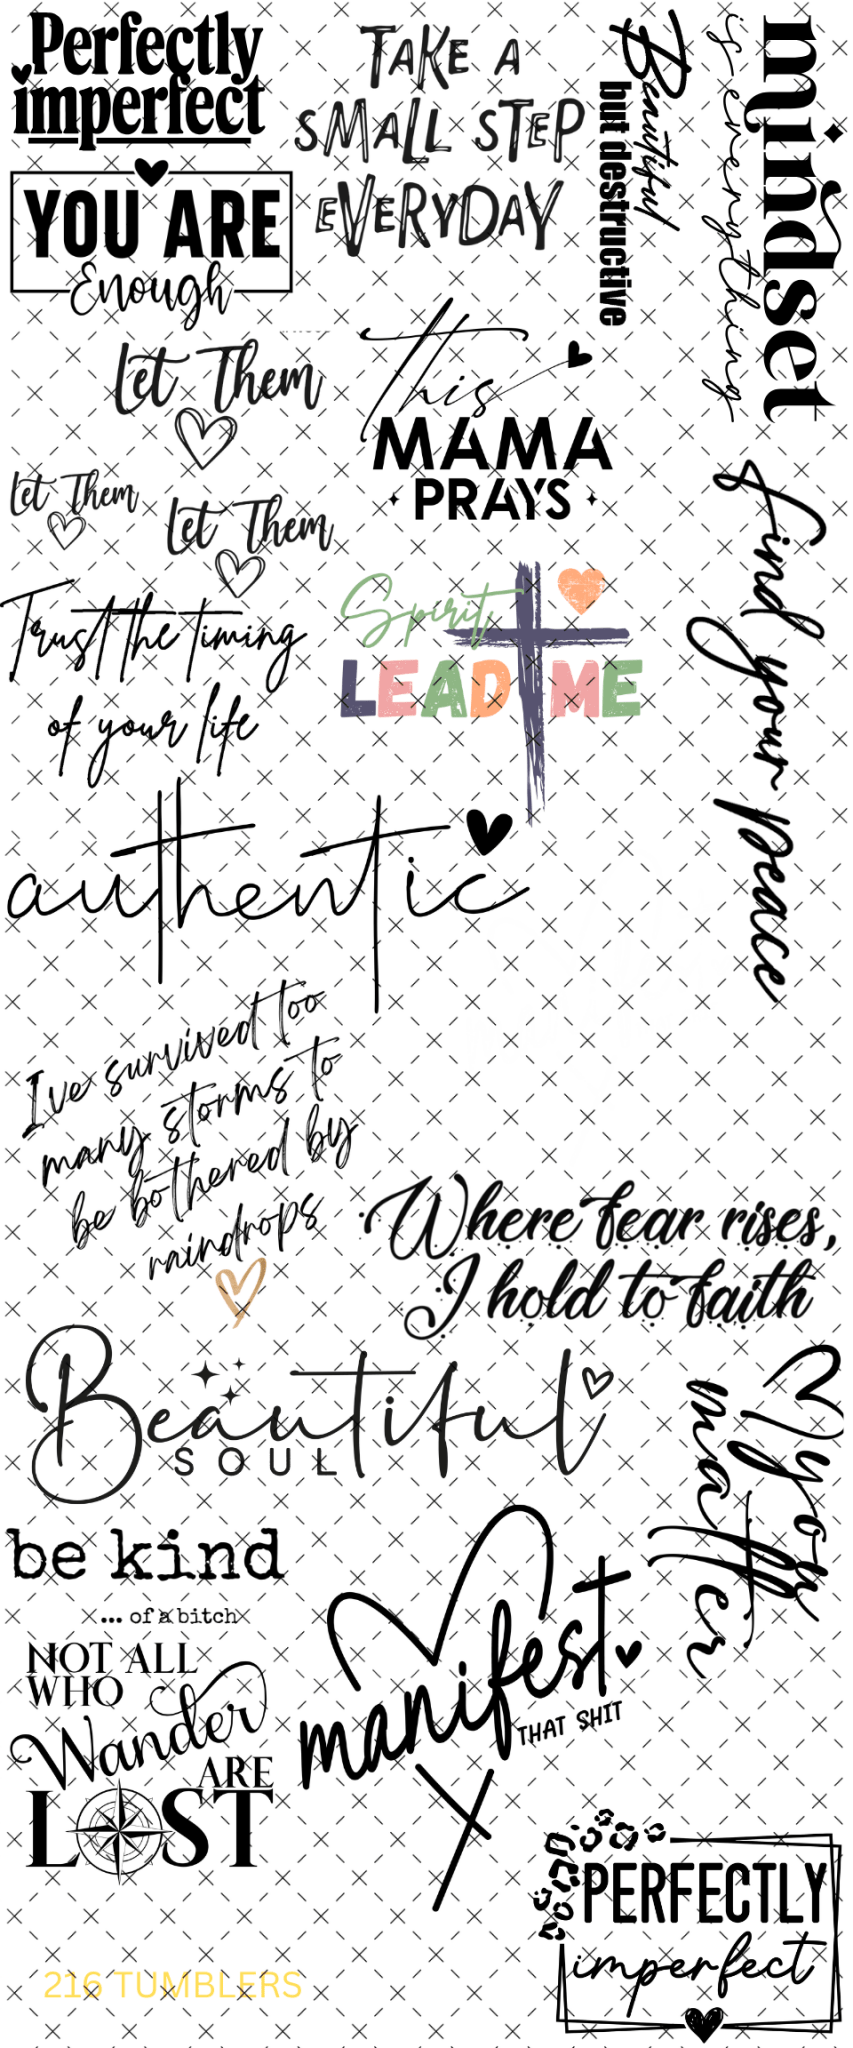 Perfectly
imperfect
YOU ARE
Enough
TAKE A
SMALL STEP
EVERYDAY
Beautiful
but destructive
mindset
is everything
Let Them
Let Them
Let Them
This
MAMA
PRAYS
find your peace
Trust the timing
of your life
Spirit
LEAD ME
authentic
I've survived too
many storms to
be bothered by
raindrops
Where fear rises,
I hold to faith
Beautiful
SOUL
you
matter
be kind
... of a bitch
NOT ALL
WHO
Wander
ARE
LOST
manifest
THAT SHIT
PERFECTLY
imperfect
216 TUMBLERS